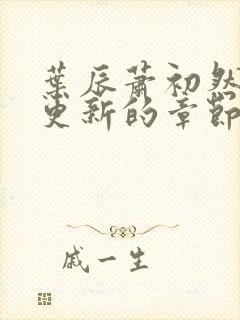 葉辰蕭初然
更新的章節
戚一生